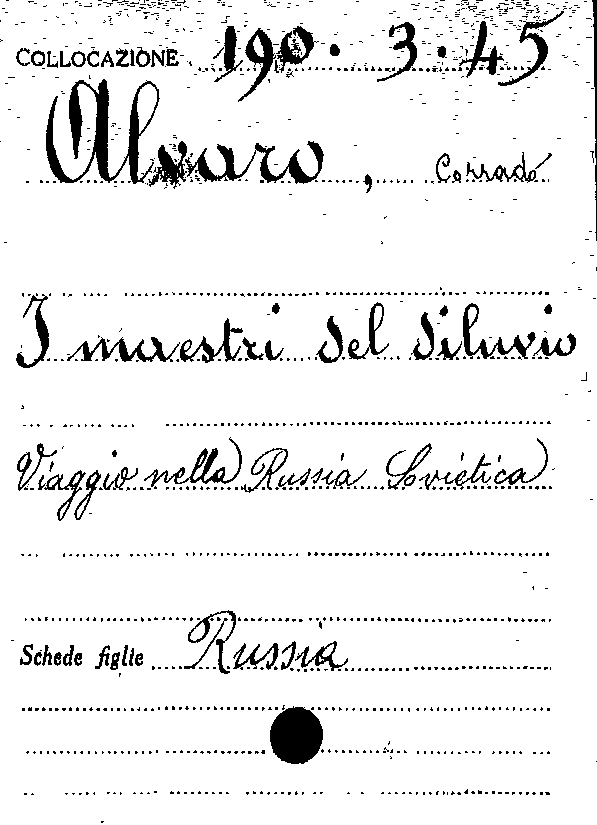 COLLOCAZIONE 190. 3. 45
Alvaro, Corrado
I maestri del diluvio
Viaggio nella Russia Sovietica
Schede figlie Russia